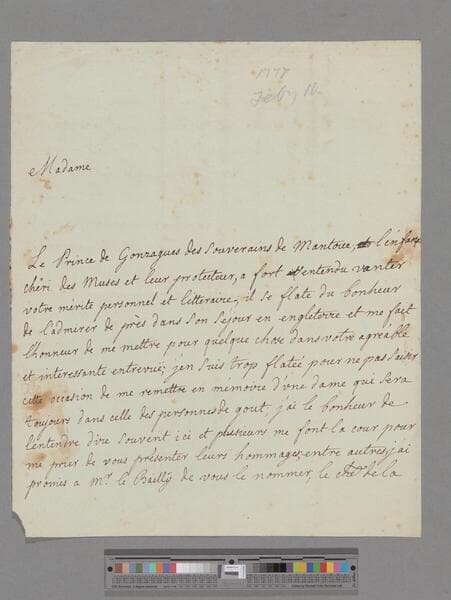 1778
Feby 10
Madame
Le Prince de Gonzagues des souverains de Mantoue, l'enfant
chéri des Muses et leur protecteur, a fort entendu vanter
votre mérite personnel et litteraire, il se flate du bonheur
de l'admirer de près dans son sejour en engleterre et me fait
l'honneur de me mettre pour quelque chose dans votre agreable
et interessante entrevüe; j'en suis trop flatée pour ne pas saisir
cette occasion de me remettre en mémoire d'une dame qui sera
toujours dans celle des personnes de gout, j'ai le bonheur de
l'entendre dire souvent ici et plusieurs me font la cour pour
me prier de vous présenter leurs hommages, entre autres, j'ai
promis a Mr. le Bailly de vous le nommer, le che de la